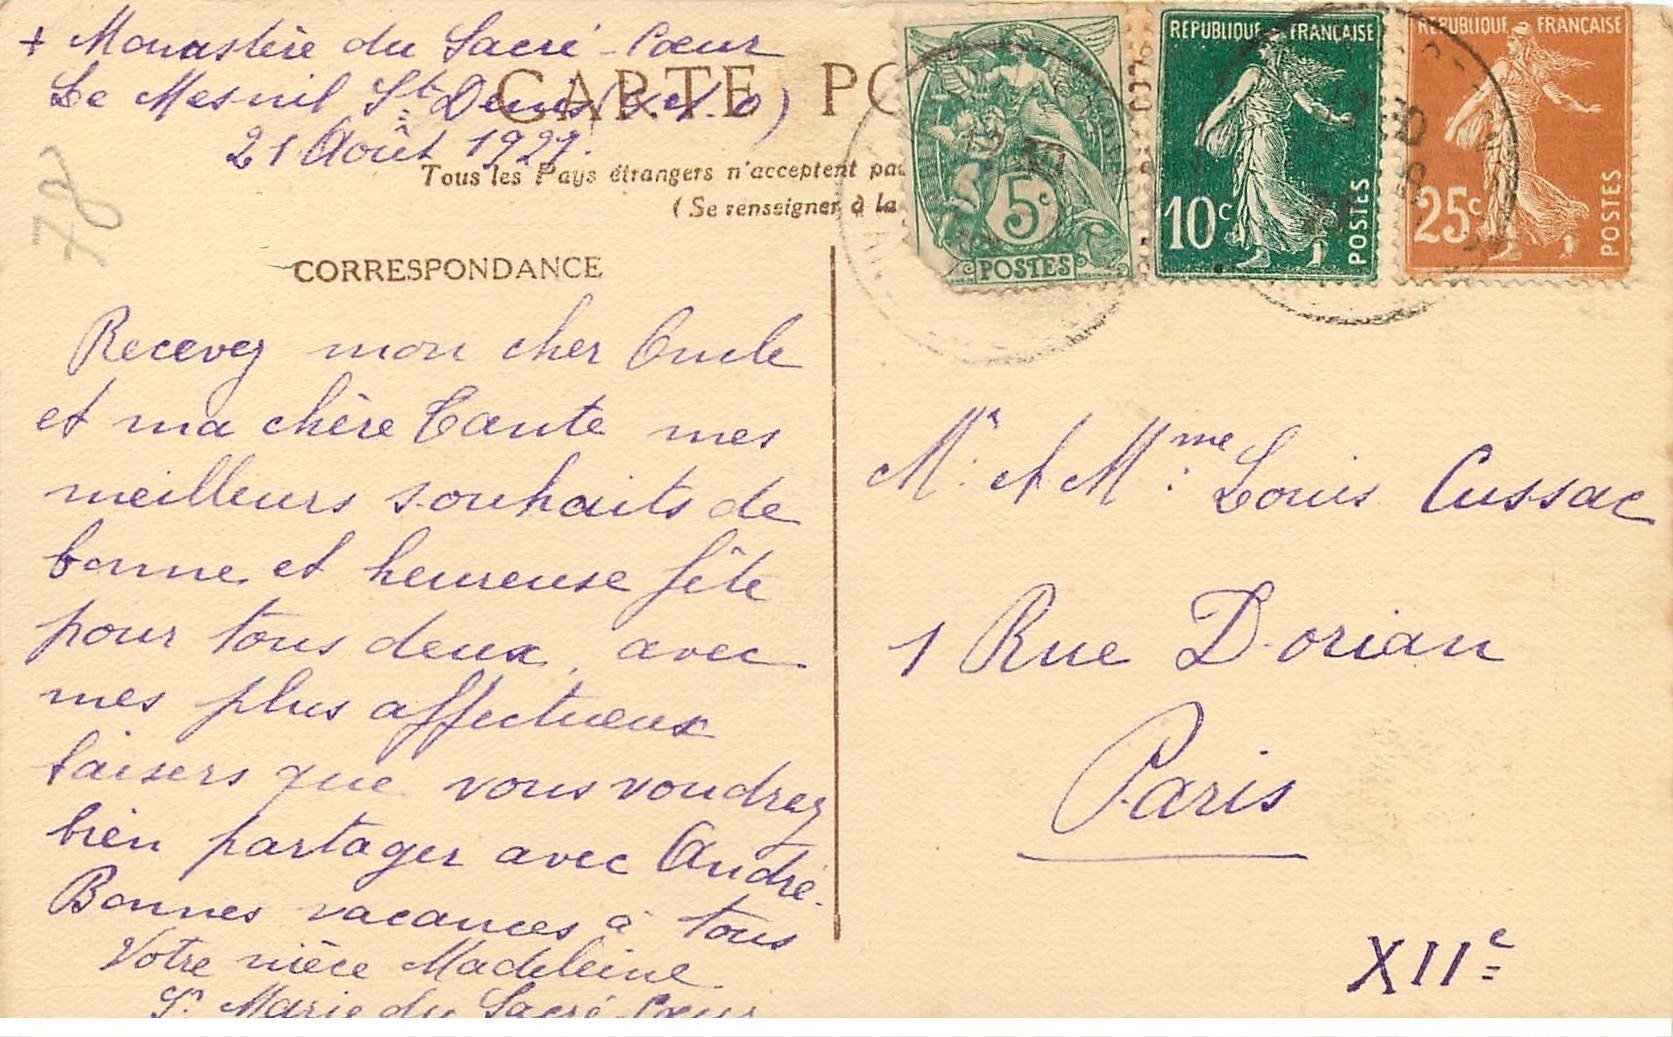 + Monastère du Sacré-Cœur
Le Mesnil St Denis (S. et. O)
21 Août 1927.
CARTE PO
Tous les Pays étrangers n'acceptent pas
(Se renseigner à la
78
CORRESPONDANCE
Recevez mon cher Oncle
et ma chère Tante mes
meilleurs souhaits de
bonne et heureuse fête
pour tous deux, avec
mes plus affectueux
baisers que vous voudrez
bien partager avec André.
Bonnes vacances à tous
Votre nièce Madeleine
Sr Marie du Sacré-Cœur
5c
POSTES
REPUBLIQUE FRANÇAISE
10c
POSTES
REPUBLIQUE FRANÇAISE
25c
POSTES
Mr. et Mme. Louis Cussac
1 Rue Dorian
Paris
XIIe